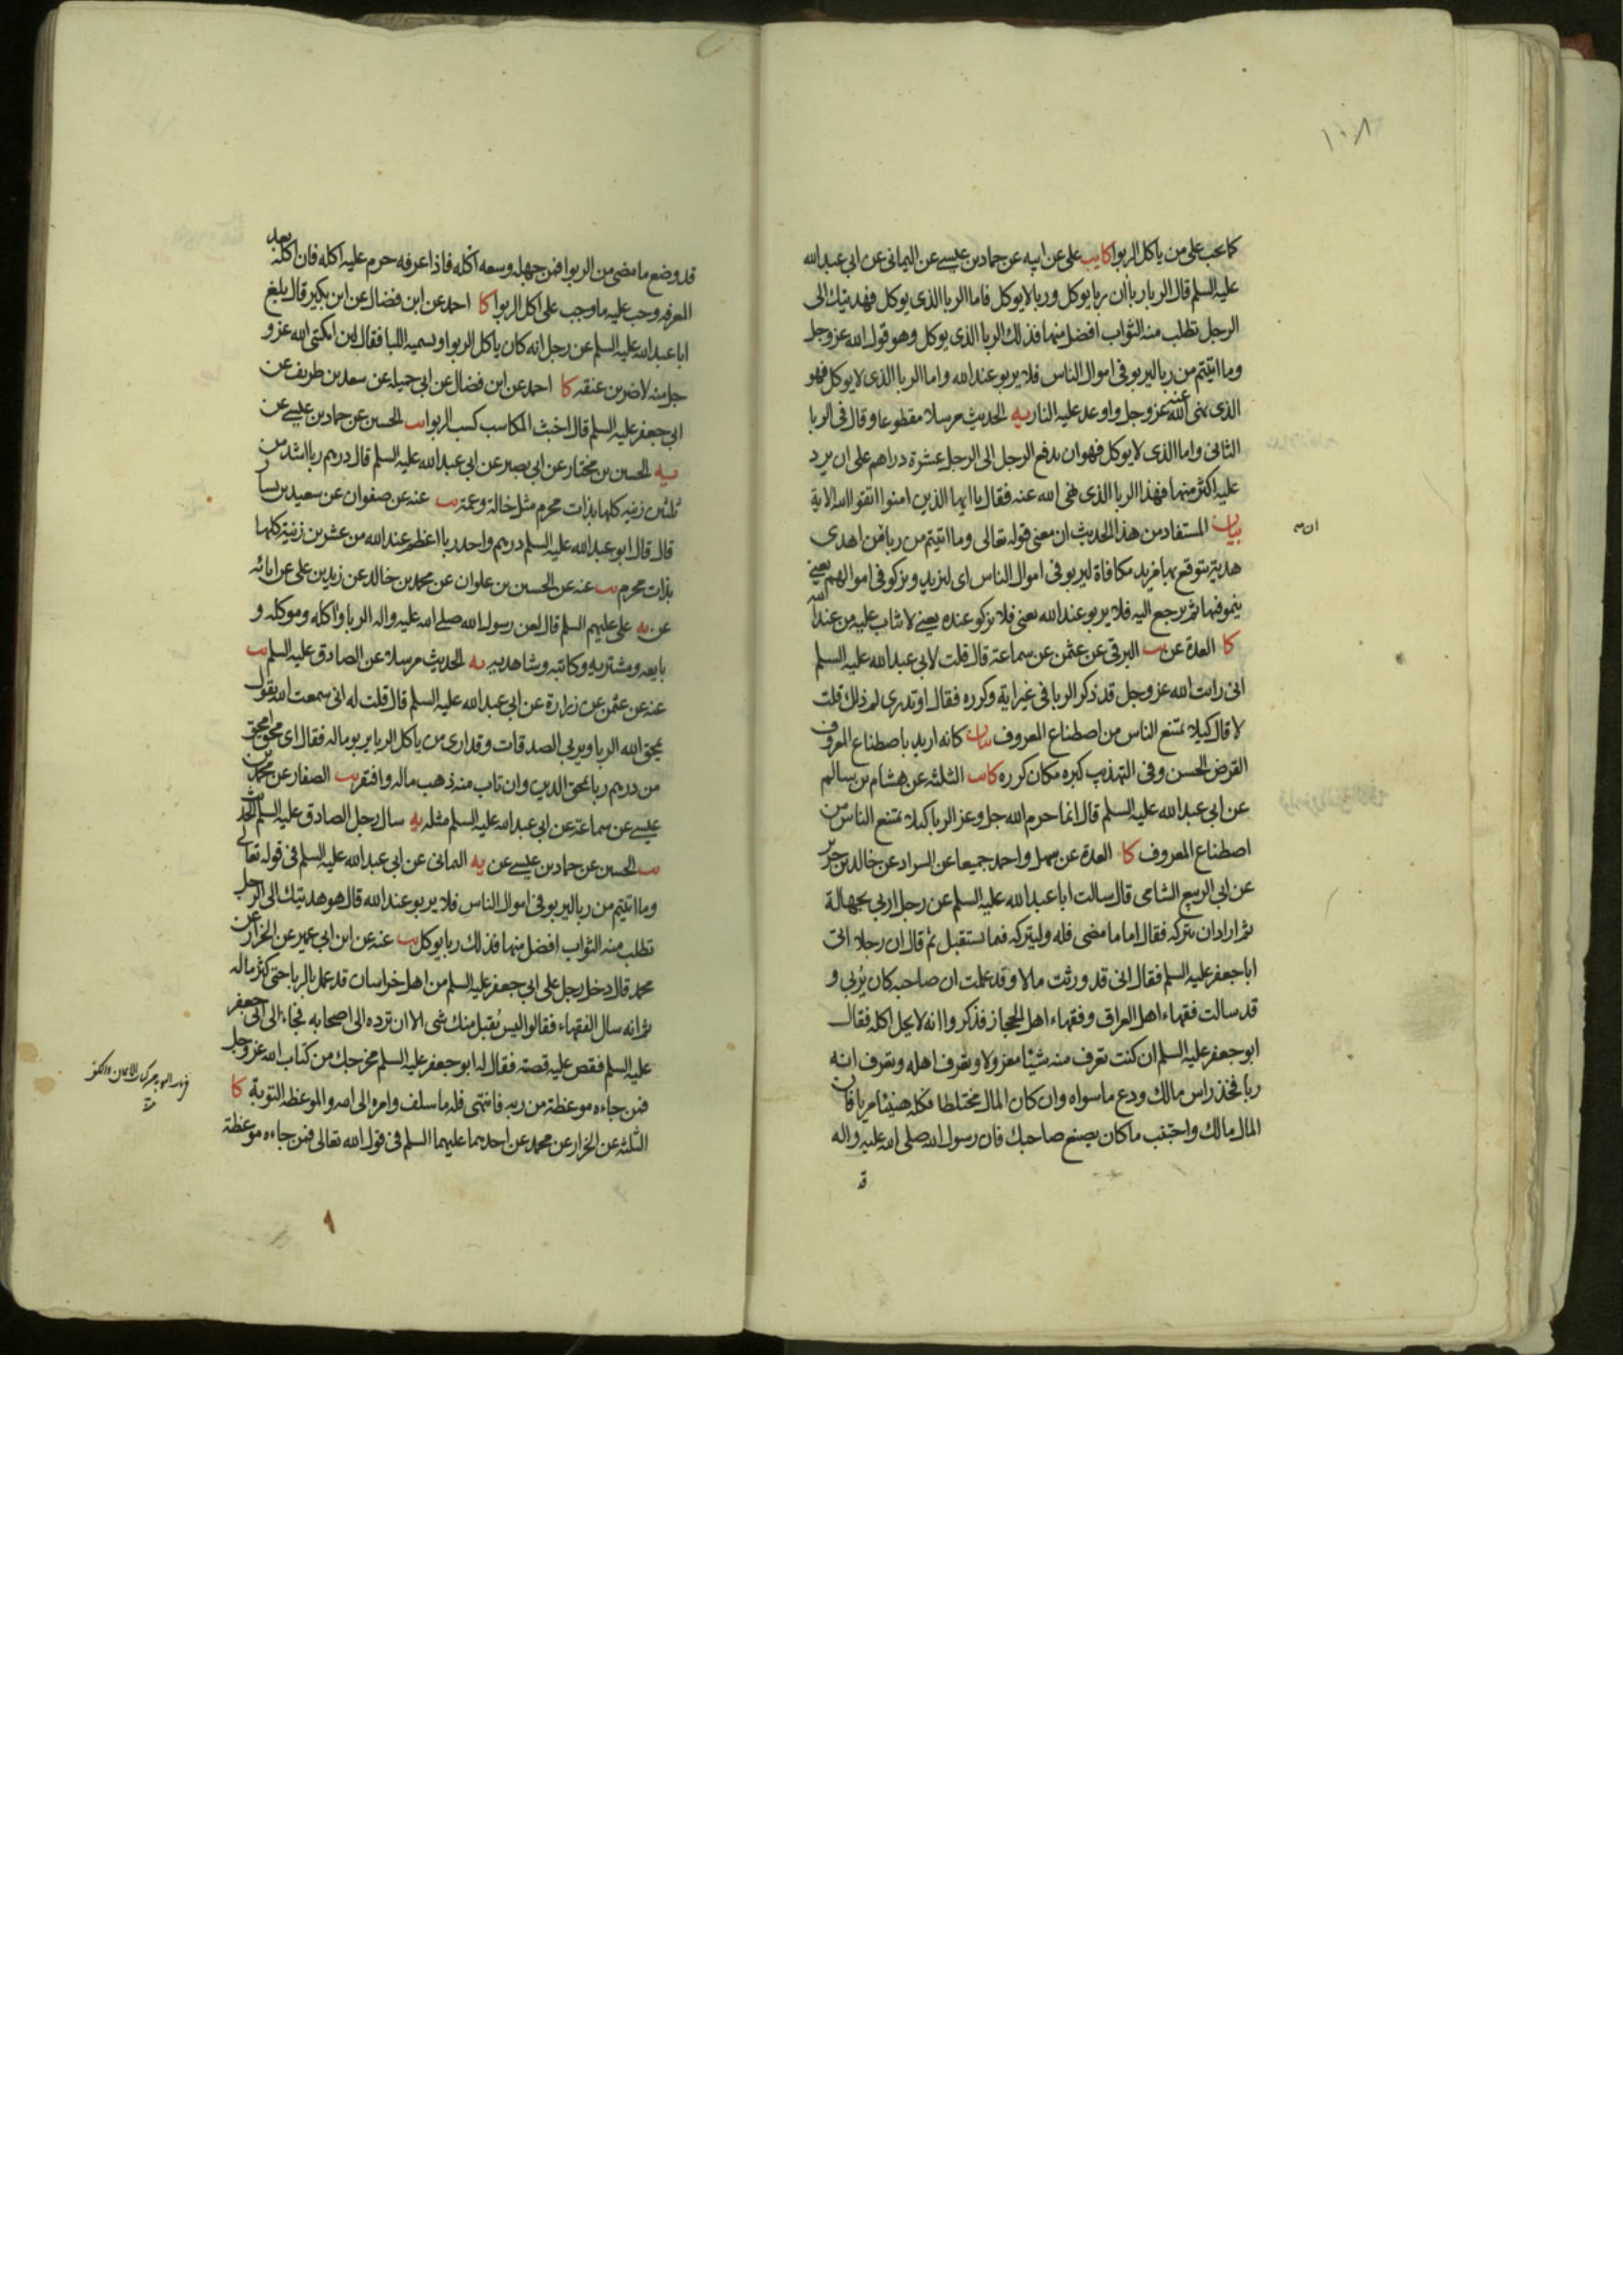 ١٠٨
كما يجب على من ياكل الربوا كا يب على عن ابيه عن حماد بن عيسى عن اليمانى عن ابى عبد الله
عليه السلم قال الربا رباان ربا يوكل وربا لا يوكل فاما الربا الذى يوكل فهديتك الى
الرجل تطلب منه الثواب افضل منها فذلك الربا الذى يوكل وهو قول الله عز وجل
وما اتيتم من ربا ليربو فى اموال الناس فلا يربو عند الله واما الربا الذى لا يوكل فهو
الذى نهى الله عنه عز وجل واوعد عليه النار يه الحديث مرسلا مقطوعا وقال فى الربا
الثانى واما الذى لا يوكل فهو ان يدفع الرجل الى الرجل عشرة دراهم على ان يرد
عليه اكثر منها فهذا الربا الذى نهى الله عنه فقال يا ايها الذين امنوا اتقوا الله الاية
بيان المستفاد من هذا الحديث ان معنى قوله تعالى وما اتيتم من ربا من اهدى
هدية يتوقع بها مزيد مكافاة ليربو فى اموال الناس اى ليزيد ويزكو فى اموالهم يعنى
ينمو فيها ثم يرجع اليه فلا يربو عند الله يعنى فلا يزكو عنده يعنى لا يثاب عليه من عند الله
كا العدة عن يب البرقى عن عثمن عن سماعة قال قلت لابى عبد الله عليه السلم
انى رايت الله عز وجل قد ذكر الربا فى غير اية وكرره فقال اوتدرى لم ذلك قلت
لا قال كيلا يمتنع الناس من اصطناع المعروف بيان كانه اريد باصطناع المعروف
القرض الحسن وفى التهذيب كبره مكان كرره كا يب الثلثه عن هشام بن سالم
عن ابى عبد الله عليه السلم قال انما حرم الله جل وعز الربا كيلا يمتنع الناس من
اصطناع المعروف كا العدة عن سهل واحمد جميعا عن السراد عن خالد بن جرير
عن ابى الربيع الشامى قال سالت ابا عبد الله عليه السلم عن رجل اربى بجهالة
ثم اراد ان يتركه فقال اما ما مضى فله وليتركه فيما يستقبل ثم قال ان رجلا اتى
ابا جعفر عليه السلم فقال انى قد ورثت مالا وقد علمت ان صاحبه كان يربى و
قد سالت فقهاء اهل العراق وفقهاء اهل الحجاز فذكروا انه لا يحل اكله فقال
ابو جعفر عليه السلم ان كنت تعرف منه شيئا معزولا وتعرف اهله وتعرف انه
ربا فخذ راس مالك ودع ما سواه وان كان المال مختلطا فكله هنيئا مريا فان
المال مالك واجتنب ما كان يصنع صاحبك فان رسول الله صلى الله عليه واله
قد
قد وضع ما مضى من الربوا فمن جهله وسعه اكله فاذا عرفه حرم عليه اكله فان اكله بعد
المعرفه وجب عليه ما وجب على اكل الربوا كا احمد عن ابن فضال عن ابن بكير قال بلغ
ابا عبد الله عليه السلم عن رجل انه كان ياكل الربوا ويسميه اللبا فقال لئن امكننى الله عز و
جل منه لاضربن عنقه كا احمد عن ابن فضال عن ابى جميله عن سعد بن طريف عن
ابى جعفر عليه السلم قال اخبث المكاسب كسب الربوا يب الحسين عن حماد بن عيسى عن
يه الحسين بن مختار عن ابى بصير عن ابى عبد الله عليه السلم قال درهم ربا اشد من
ثلثين زنيه كلها بذات محرم مثل خالة وعمة يب عنه عن صفوان عن سعيد بن يسار
قال قال ابو عبد الله عليه السلم درهم واحد ربا اعظم عند الله من عشرين زنية كلها
بذات محرم يب عنه عن الحسين بن علوان عن محمد بن خالد عن زيد بن على عن ابائه
عن يه على عليهم السلم قال لعن رسول الله صلى الله عليه واله الربا واكله وموكله و
بايعه ومشتريه وكاتبه وشاهديه يه الحديث مرسلا عن الصادق عليه السلم يب
عنه عن عثمن عن زرارة عن ابى عبد الله عليه السلم قال قلت له انى سمعت الله يقول
يمحق الله الربا ويربى الصدقات وقد ارى من ياكل الربا يربو ماله فقال اى محق امحق
من درهم ربا يمحق الدين وان تاب منه ذهب ماله وافتقر يب الصفار عن محمد بن
عيسى عن سماعة عن ابى عبد الله عليه السلم مثله يه سال رجل الصادق عليه السلم الحديث
يب الحسين عن حماد بن عيسى عن يه اليمانى عن ابى عبد الله عليه السلم فى قوله تعالى
وما اتيتم من ربا ليربو فى اموال الناس فلا يربو عند الله قال هو هديتك الى الرجل
تطلب منه الثواب افضل منها فذلك ربا يوكل يب عنه عن ابن ابى عمير عن الخزاز عن
محمد قال دخل رجل على ابى جعفر عليه السلم من اهل خراسان قد عمل بالربا حتى كثر ماله
ثم انه سال الفقهاء فقالوا ليس يقبل منك شى الا ان ترده الى اصحابه فجاء الى ابى جعفر
عليه السلم فقص عليه قصته فقال له ابو جعفر عليه السلم مخرجك من كتاب الله عز وجل
فمن جاءه موعظة من ربه فانتهى فله ما سلف وامره الى الله والموعظه التوبة كا
الثلثه عن الخزاز عن محمد عن احدهما عليهما السلم فى قول الله تعالى فمن جاءه موعظة